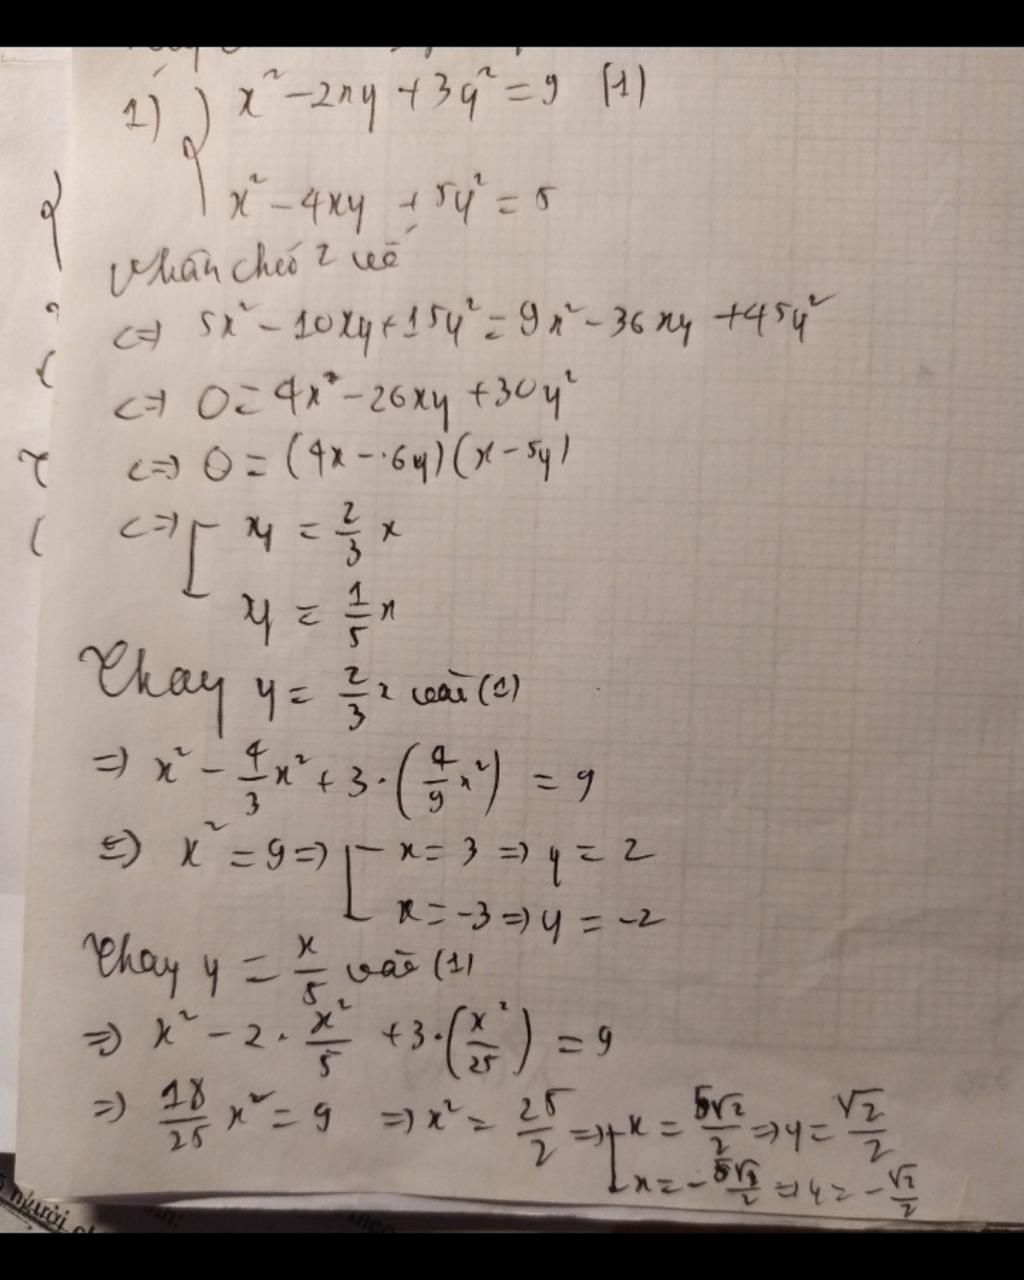 1) { x² - 2xy + 3y² = 9 (1)
x² - 4xy + 5y² = 5
Nhân chéo 2 vế
<=> 5x² - 10xy + 15y² = 9x² - 36xy + 45y²
<=> 0 = 4x² - 26xy + 30y²
<=> 0 = (4x - 6y)(x - 5y)
<=> [ y = 2/3 x
y = 1/5 x
Thay y = 2/3 x vào (1)
=> x² - 4/3 x² + 3 · (4/9 x²) = 9
<=> x² = 9 => [ x = 3 => y = 2
x = -3 => y = -2
Thay y = x/5 vào (1)
=> x² - 2 · x²/5 + 3 · (x²/25) = 9
=> 18/25 x² = 9 => x² = 25/2 => [ x = 5√2/2 => y = √2/2
x = - 5√2/2 => y = - √2/2
người